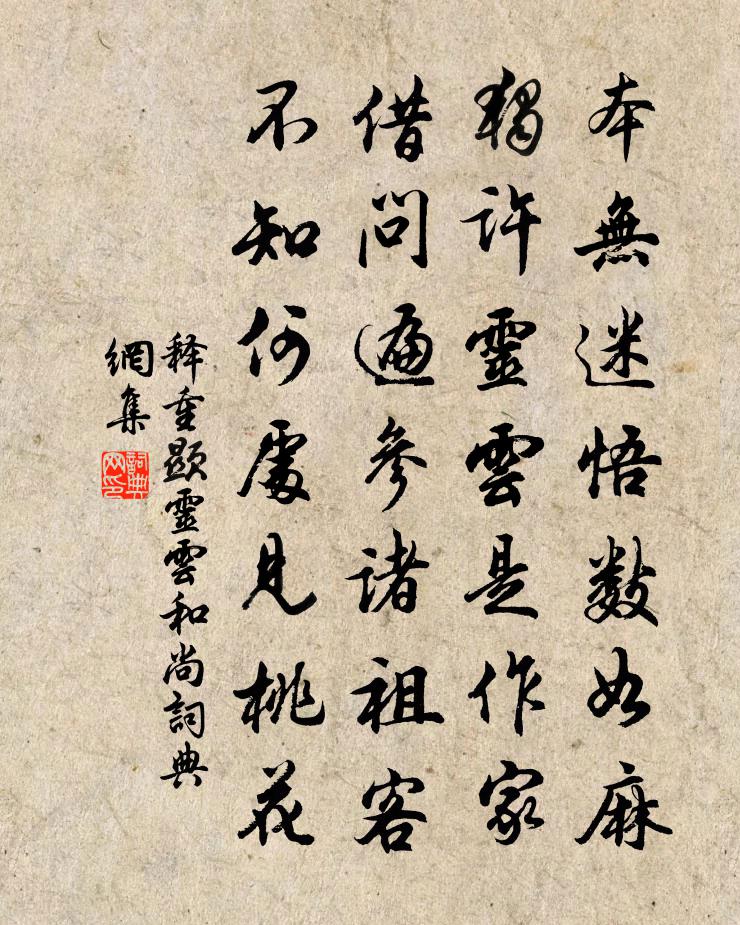 本無迷悟數如麻
獨許靈雲是作家
借問遍參諸祖客
不知何處見桃花
释重顯靈雲和尚詞典
網集
詞典
网印